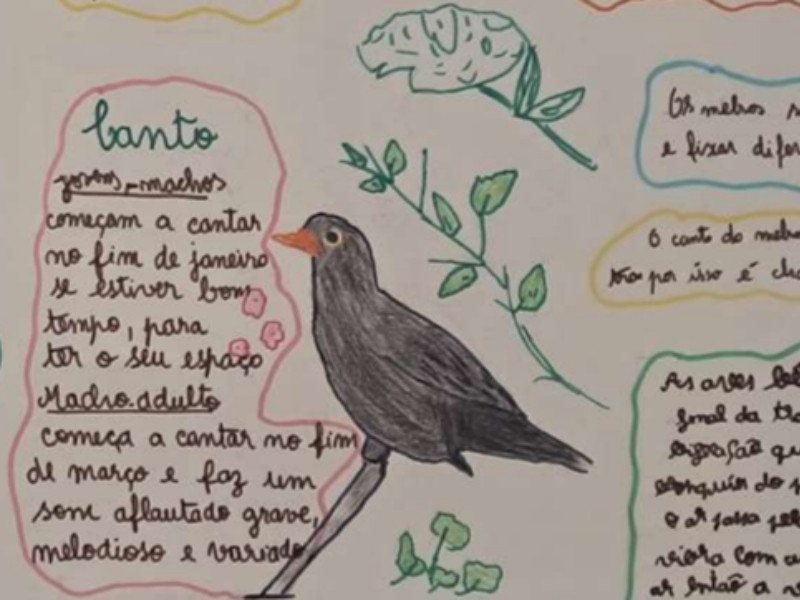 Canto
jovens-machos
começam a cantar
no fim de janeiro
se estiver bom
tempo, para
ter o seu espaço
Macho-adulto
começa a cantar no fim
de março e faz um
som aflautado grave,
melodioso e variado
Os melros
e fixar
O canto do
por isso é
As aves
da
que
do
o ar passa
com a
ar então a